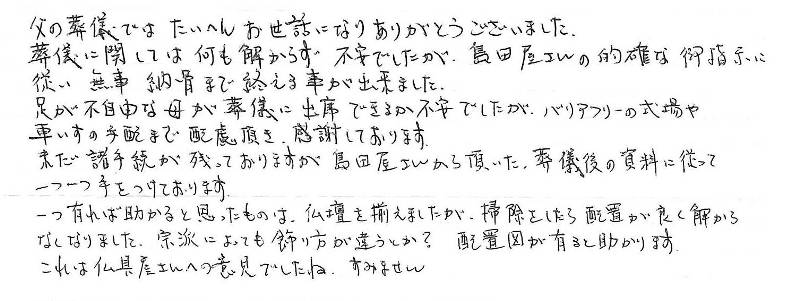 父の葬儀ではたいへんお世話になりありがとうございました.
葬儀に関しては何も解からず 不安でしたが、島田屋さんの的確な御指示に
従い 無事 納骨まで終える事が出来ました.
足が不自由な母が葬儀に出席できるか不安でしたが、バリアフリーの式場や
車いすの手配まで配慮頂き、感謝しております.
まだ諸手続が残っておりますが島田屋さんから頂いた、葬儀後の資料に従って
一つ一つ手をつけております.
一つ有れば助かると思ったものは、仏壇を揃えましたが、掃除をしたら配置が良く解から
なくなりました. 宗派によっても飾り方が違うとか? 配置図が有ると助かります.
これは仏具屋さんへの意見でしたね. すみません